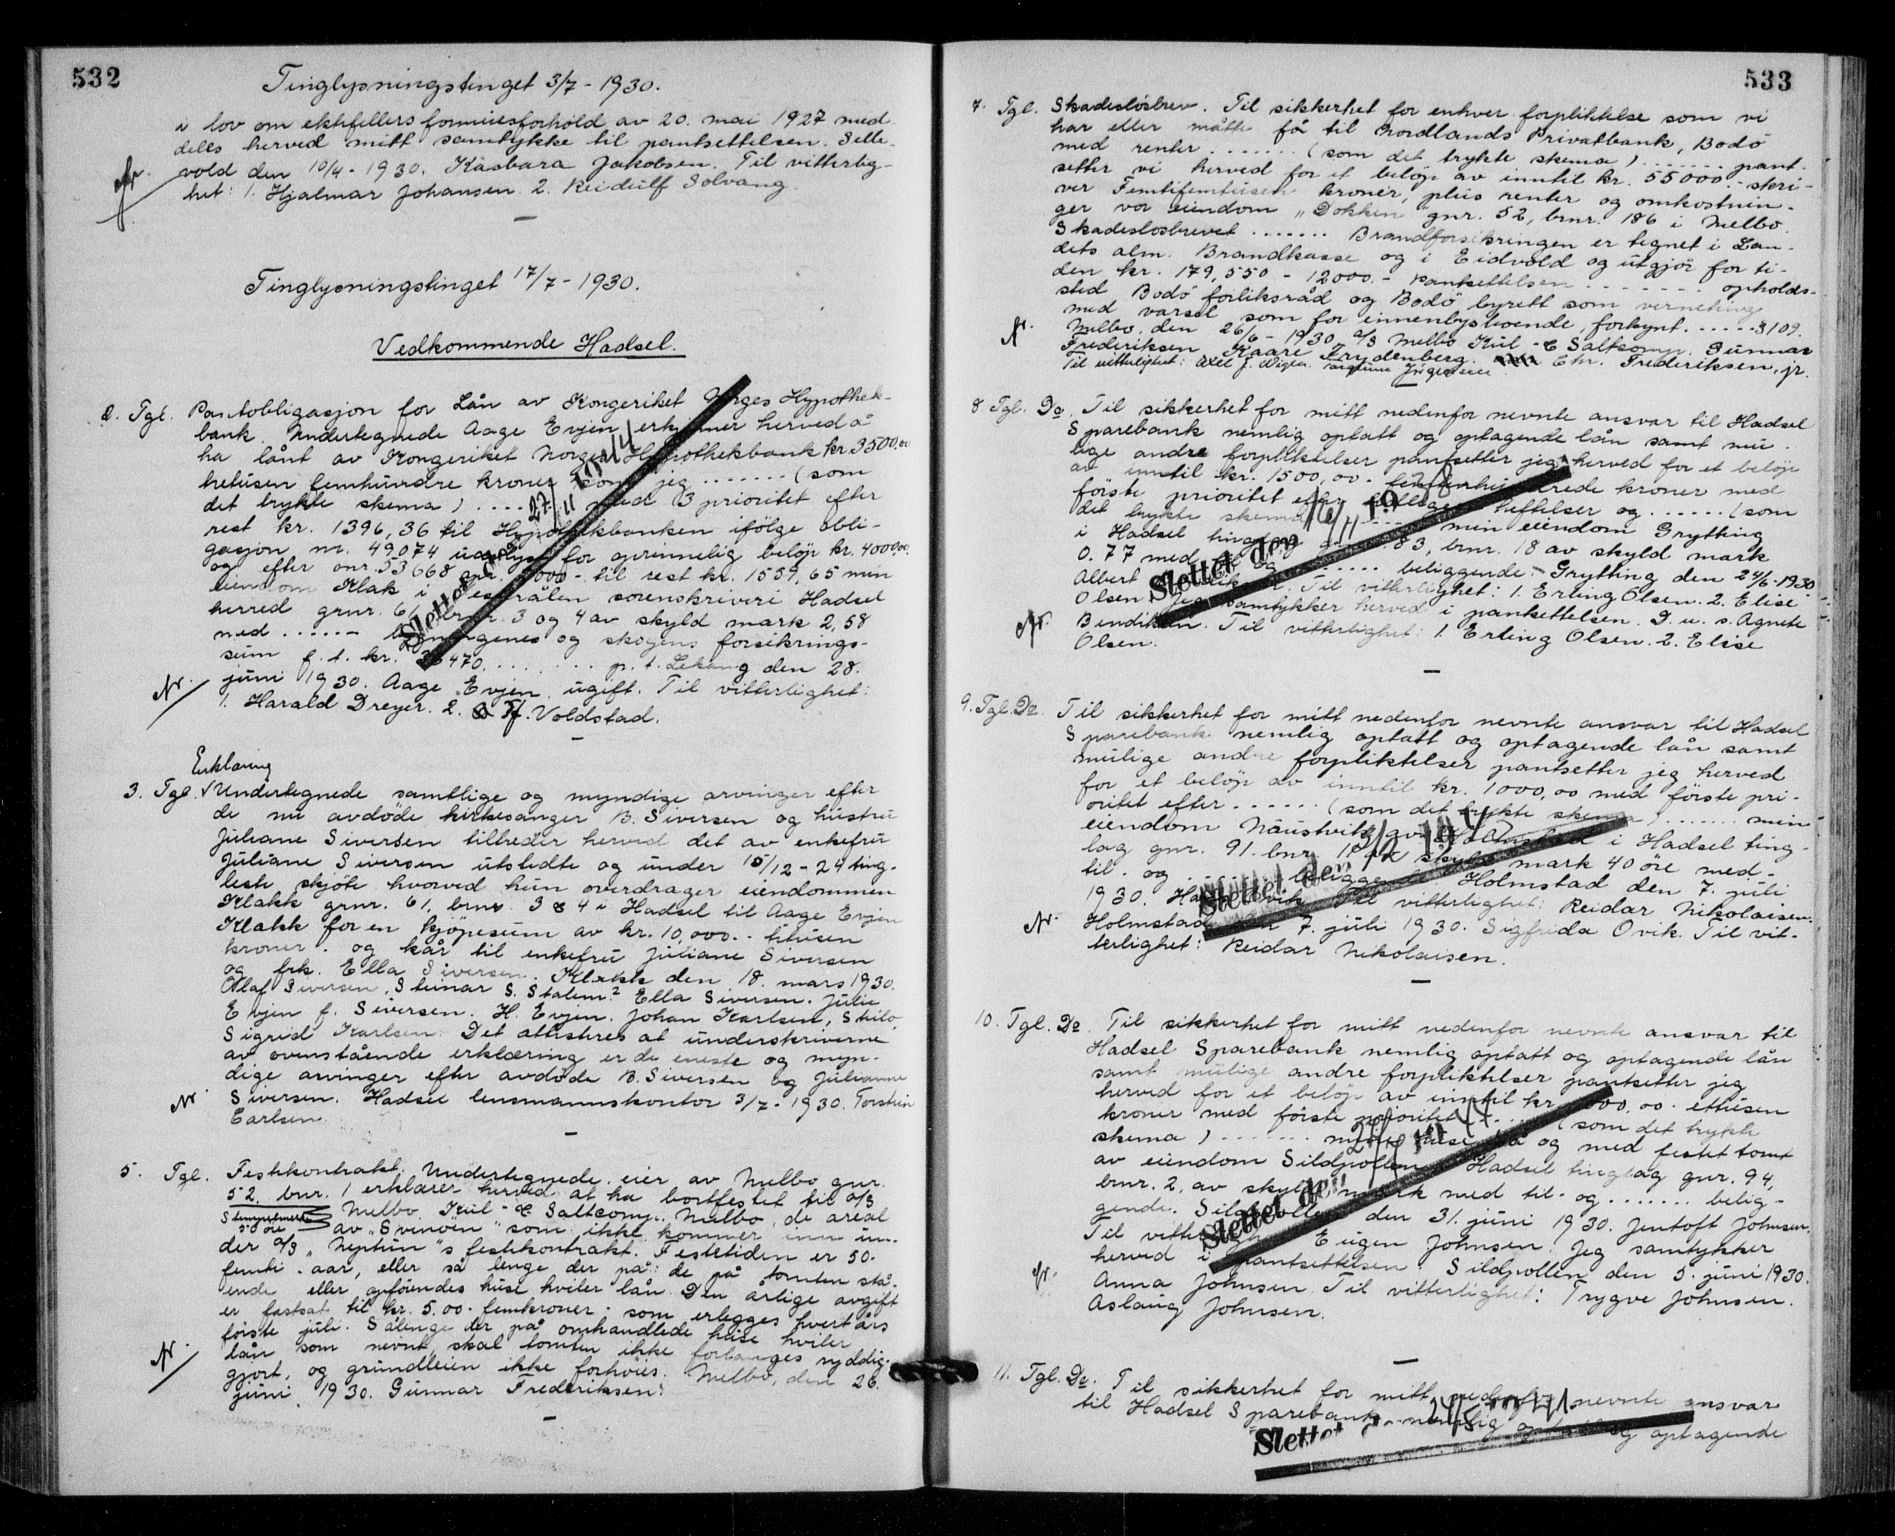 532
Tinglysningstinget 3/7 - 1930.
i lov om ektefellers formuesforhold av 20. mai 1927 med-
deles herved mitt samtykke til pantsettelsen. Selle-
vold den 10/4 - 1930. Kasbara Jakobsen. Til vitterlig-
het: 1. Hjalmar Johansen. 2. Reidulf Solvang.
Tinglysningstinget 17/7 - 1930.
Vedkommende Hadsel.
2. Tgl. Pantobligasjon for Lån av Kongeriket Norges Hypothek-
bank. Undertegnede Aage Evjen erkjenner herved å
ha lånt av Kongeriket Norges Hypothekbank kr. 3500,00
tretusen femhundre kroner som jeg ....... (som
det trykte skema) ..... med 3 prioritet efter
rest kr. 1396,36 til Hypothekbanken ifölge obli-
gasjon nr. 49074 utstedt for oprinnelig belöp kr. 4000,00
og efter onr. 53668 opr. 2000 - til rest kr. 1559,65 min
eiendom Klak i Vesterålen sorenskriveri Hadsel
herred grnr. 61 brnr. 3 og 4 av skyld mark 2,58
med ...... Bygningenes og skogens forsikrings-
sum f. t. kr. 470. ....... p. t. Lekang den 28.
juni 1930. Aage Evjen, ugift. Til vitterlighet:
1. Harald Dreyer. 2. Voldstad.
Slettet den 27/11 1944
Erklæring
3. Tgl. √ Undertegnede samtlige og myndige arvinger efter
de nu avdöde kirkesanger B. Siversen og hustru
Juliane Siversen tiltreder herved det av enkefru
Juliane Siversen utstedte og under 15/12 - 24 ting-
leste skjöte hvorved hun overdrager eiendommen
Klakk grnr. 61, brnr. 3 & 4 i Hadsel til Aage Evjen
Klakk for en kjöpesum av kr. 10,000.- titusen
kroner. og kår til enkefru Juliane Siversen
og frk. Ella Siversen. Klakk den 18. mars 1930.
Olaf Siversen, Steinar S. Stalem? Ella Siversen. Julie
Evjen f. Siversen. H. Evjen. Johan Karlsen,
Sigrid Karlsen. Det attesteres at underskriverne
av ovenstående erklæring er de eneste og myn-
dige arvinger efter avdöde B. Siversen og Julianne
Siversen. Hadsel lensmannskontor 3/7 - 1930. Torstein
Carlsen.
5. Tgl. Festekontrakt. Undertegnede, eier av Melbo gnr.
52 bnr. 1 erklærer herved at ha bortfestet til A/S
Stempelmerke Melbo Kul - & Saltcomp. Melbo, de areal
50 öre av "Svinöen" som ikke kommer inn un-
der A/S "Neptun"s festekontrakt. Festetiden er 50.
femti - aar, eller så lenge der på: de på tomten stå-
ende eller opföendes huse hviler lån. Den årlige avgift
er fastsat til kr. 5.00 - femkroner - som erlegges hvert års
förste juli. Sålenge der på omhandlede huse hviler
lån som nevnt, skal tomten ikke forlanges ryddig-
gjort, og grundleien ikke forhöies. Melbo, den 26.
juni 1930. Gunnar Frederiksen.
533
7. Tgl. Skadeslösbrev. Til sikkerhet for enhver forpliktelse som vi
har eller måtte få til Nordlands Privatbank, Bodö
med renter ....... (som det trykte skema) ....... pant-
setter vi herved for et belöp av inntil kr. 55000.- skri-
ver Femtifemtusen kroner, plus renter og omkostnin-
ger vor eiendom "Dokken" gnr. 52, brnr. 186 i Melbo.
Skadeslösbrevet ....... Brandforsikringen er tegnet i Lan-
dets alm. Brandkasse og i Eidvold og utgjör for ti-
den kr. 179,550 - 12000.- Pantsettelsen ....... opholds-
sted Bodö forliksråd og Bodö byrett som verneting
med varsel som for innenbysboende, forkynt ..... § 109.
Melbo, den 26/6 - 1930. A/S Melbo Kul - & Saltcomp. Gunnar
Frederiksen Kaare Frydenberg. Chr. Frederiksen, jr.
Til vitterlighet: Axel J.
8. Tgl. Do. Til sikkerhet for mitt nedenfor nevnte ansvar til Hadsel
Sparebank nemlig optatt og optagende lån samt mu-
lige andre forpliktelser pantsetter jeg herved for et belöp
av inntil kr. 1500,00. femtenhundrede kroner med
förste prioritet efter heftelser og ...... (som
det trykte skema) ....... min eiendom Grytting
i Hadsel tinglag gnr. 83, brnr. 18 av skyld mark
0.77 med og ..... beliggende. Grytting den 24/6 - 1930.
Albert . Til vitterlighet: 1. Erling Olsen. 2. Elise
Olsen. Jeg samtykker herved i pantsettelsen. D. u. s. Agnete
Bendiksen. Til vitterlighet: 1. Erling Olsen. 2. Elise
Olsen.
Slettet den 19
9. Tgl. Do. Til sikkerhet for mitt nedenfor nevnte ansvar til Hadsel
Sparebank nemlig optatt og optagende lån samt
mulige andre forpliktelser pantsetter jeg herved
for et belöp av inntil kr. 1000,00 med förste pri-
oritet efter ...... (som det trykte skema) ....... min
eiendom Naustvik av i Hadsel ting-
lag gnr. 91. bnr. av skyld mark 40 öre med
til. og ...... beliggende Holmstad den 7. juli
1930. Til vitterlighet: Reidar Nikolaisen.
Holmstad den 7. juli 1930. Sigfrida Ovik. Til vit-
terlighet: Reidar Nikolaisen.
Slettet den
10. Tgl. Do. Til sikkerhet for mitt nedenfor nevnte ansvar til
Hadsel Sparebank nemlig optatt og optagende lån
samt mulige andre forpliktelser pantsetter jeg
herved for et belöp av inntil kr. 1000,00. ettusen
kroner med förste prioritet ..... (som det trykte
skema) ....... mine huse på og med festet tomt
av eiendom Sildpollen i Hadsel tinglag gnr. 94,
bnr. 2, av skyld mark med til. og ....... belig-
gende. Sildpollen den 31. juni 1930. Jentoft Johnsen.
Til vitterlighet: Eugen Johnsen. Jeg samtykker
herved i pantsettelsen. Sildpollen den 5. juni 1930.
Anna Johnsen. Til vitterlighet: Trygve Johnsen.
Aslaug Johnsen.
Slettet den
11. Tgl. Do. Til sikkerhet for mitt nedenfor nevnte ansvar
til Hadsel Sparebank nemlig optatt og optagende
Slettet